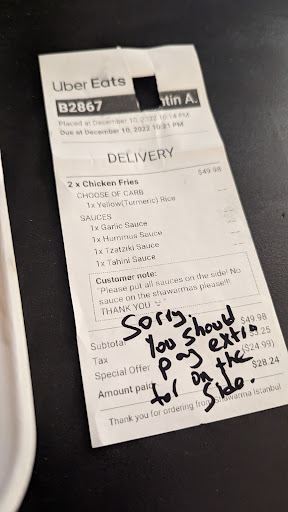 Uber Eats
B2867 ntin A.
Placed at December 10, 2022 10:14 PM
Due at December 10, 2022 10:31 PM
DELIVERY
2 x Chicken Fries $49.98
CHOOSE OF CARB
1x Yellow(Turmeric) Rice
SAUCES
1x Garlic Sauce
1x Hummus Sauce
1x Tzatziki Sauce
1x Tahini Sauce
Customer note:
"Please put all sauces on the side! No
sauce on the shawarmas please!!
THANK YOU
Subtotal $49.98
Tax 3.25
Special Offer ($24.99)
Amount paid $28.24
Thank you for ordering from Shawarma Istanbul
Sorry.
You should
pay extra
for on the
side.